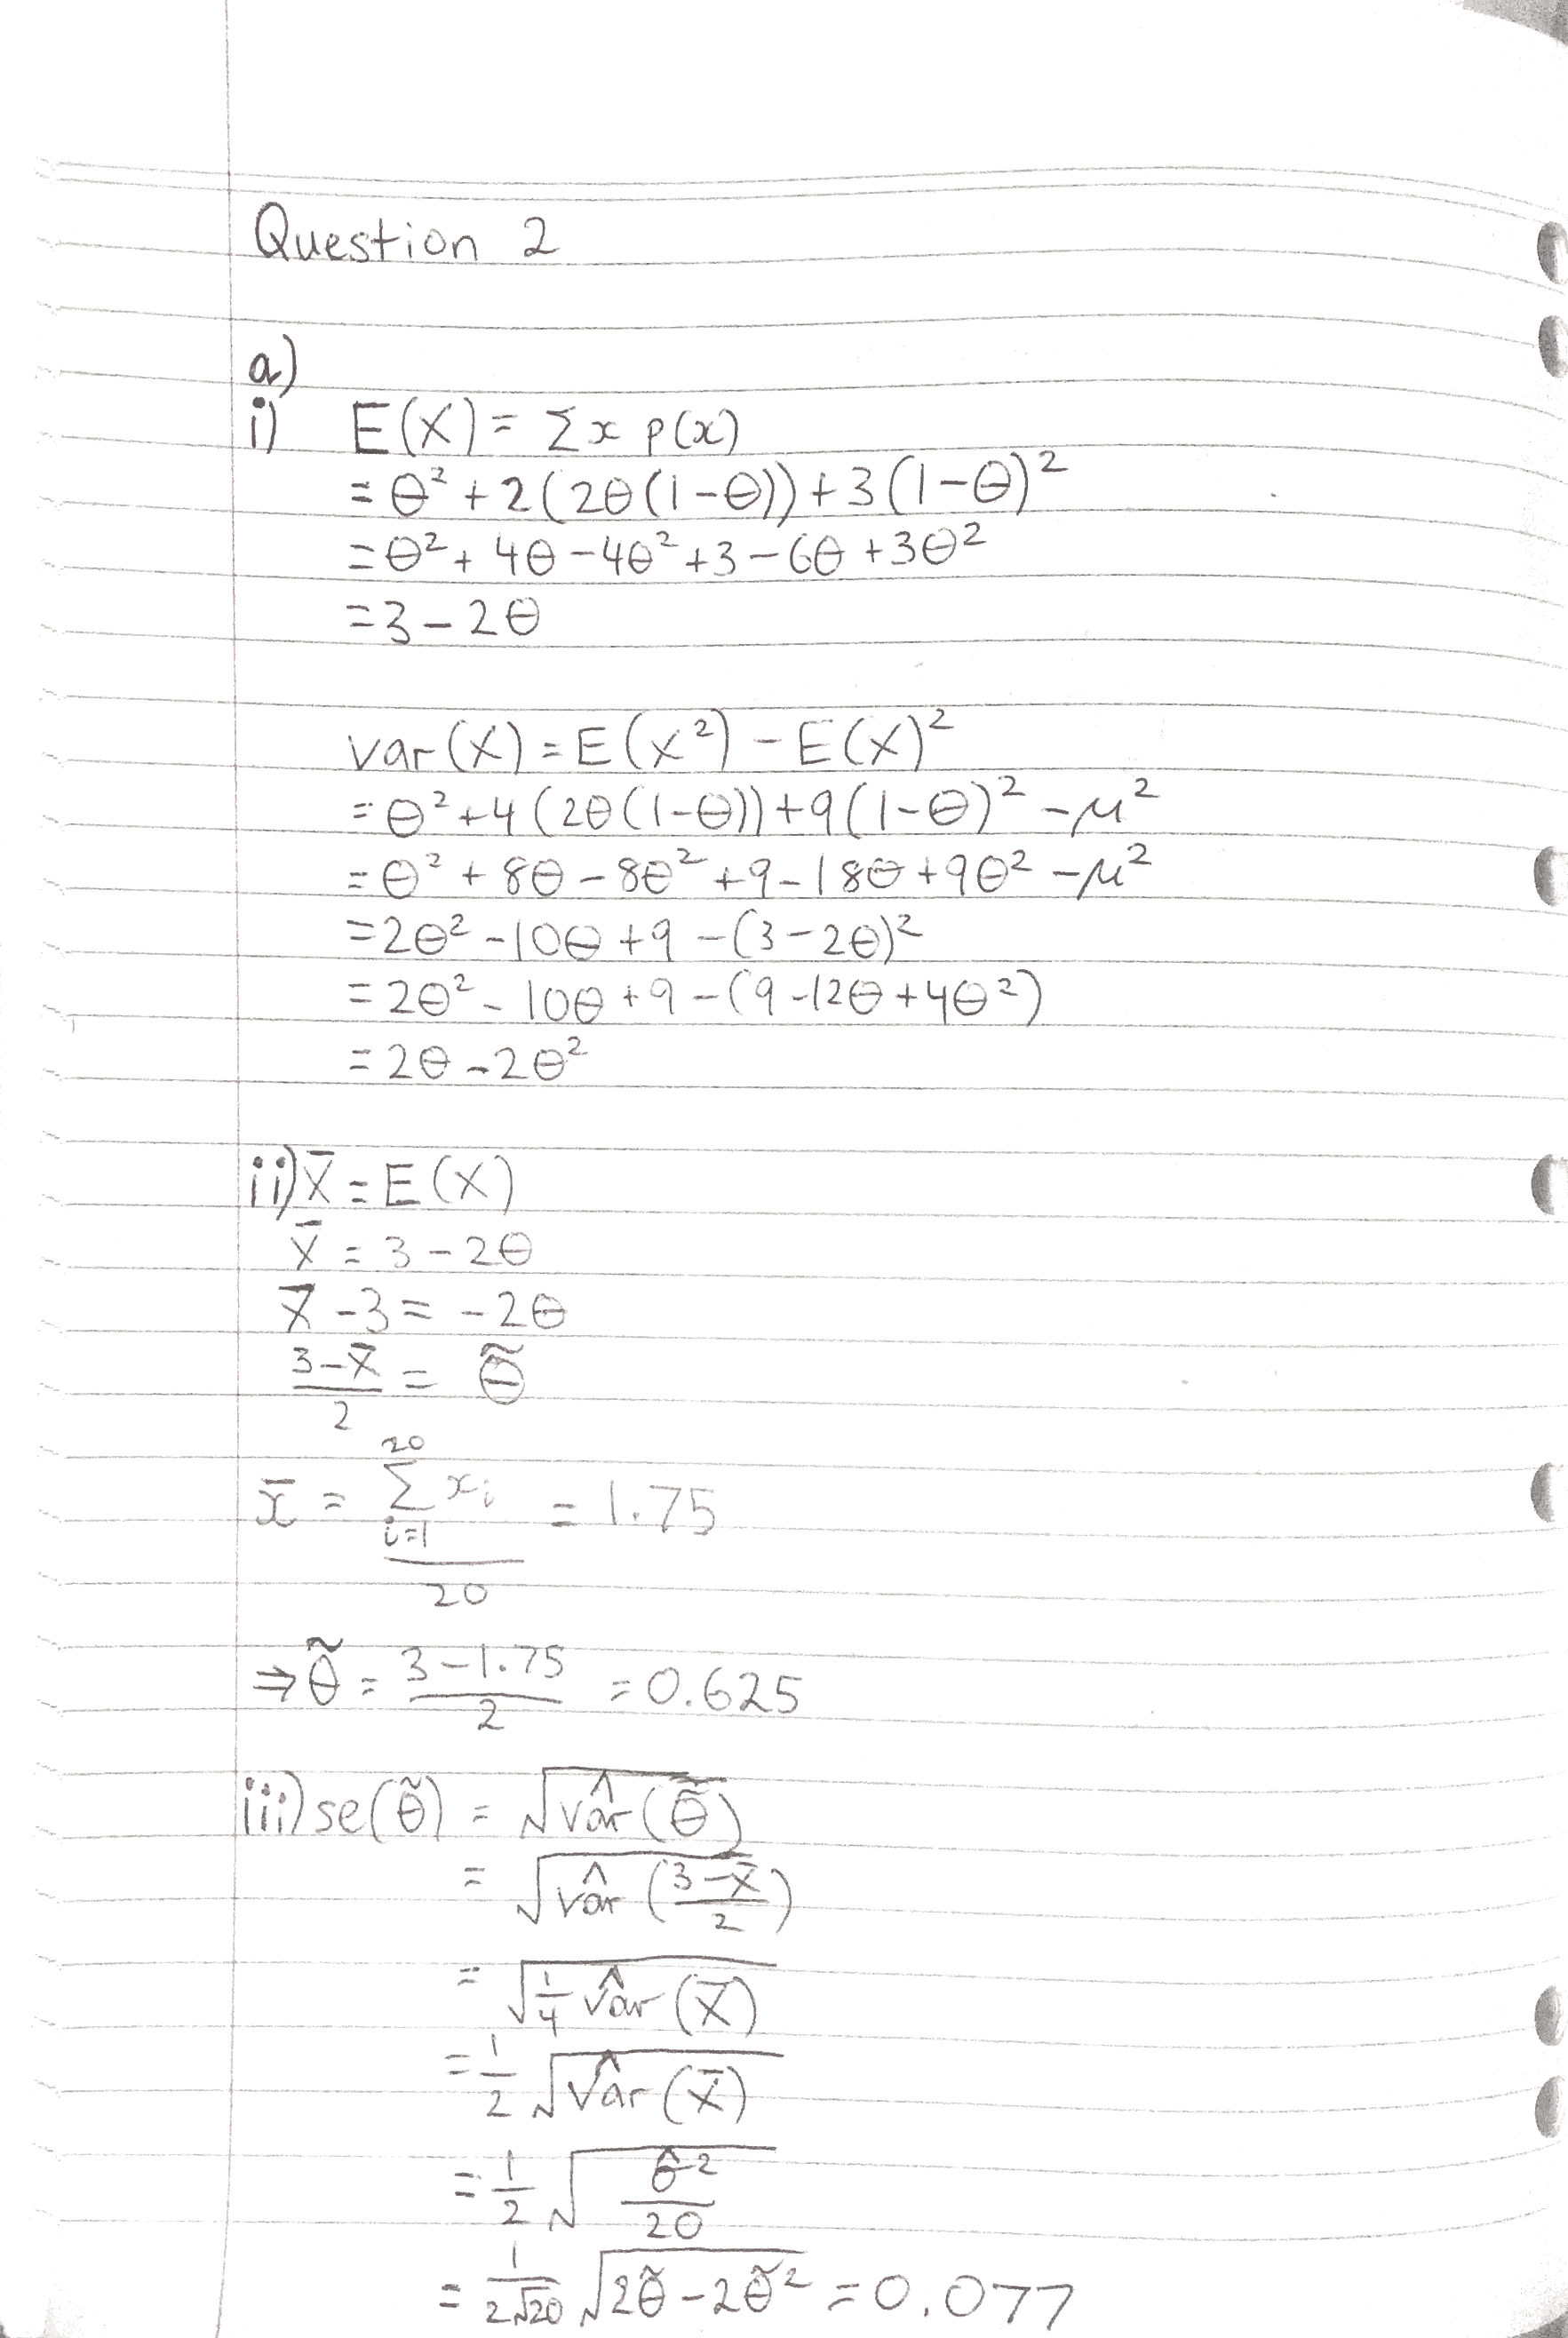 Question 2
a)
i) E(X) = Σ x p(x)
= θ² + 2(2θ(1-θ)) + 3(1-θ)²
= θ² + 4θ - 4θ² + 3 - 6θ + 3θ²
= 3 - 2θ
var(X) = E(X²) - E(X)²
= θ² + 4(2θ(1-θ)) + 9(1-θ)² - μ²
= θ² + 8θ - 8θ² + 9 - 18θ + 9θ² - μ²
= 2θ² - 10θ + 9 - (3 - 2θ)²
= 2θ² - 10θ + 9 - (9 - 12θ + 4θ²)
= 2θ - 2θ²
ii) X̄ = E(X)
X̄ = 3 - 2θ
X̄ - 3 = -2θ
(3 - X̄)/2 = θ̃
x̄ = (Σ_{i=1}^{20} xᵢ)/20 = 1.75
⇒ θ̃ = (3 - 1.75)/2 = 0.625
iii) se(θ̃) = √(vâr(θ̃))
= √(vâr((3 - X̄)/2))
= √(1/4 vâr(X̄))
= 1/2 √(vâr(X̄))
= 1/2 √(σ̂²/20)
= 1/(2√20) √(2θ̃ - 2θ̃²) = 0.077